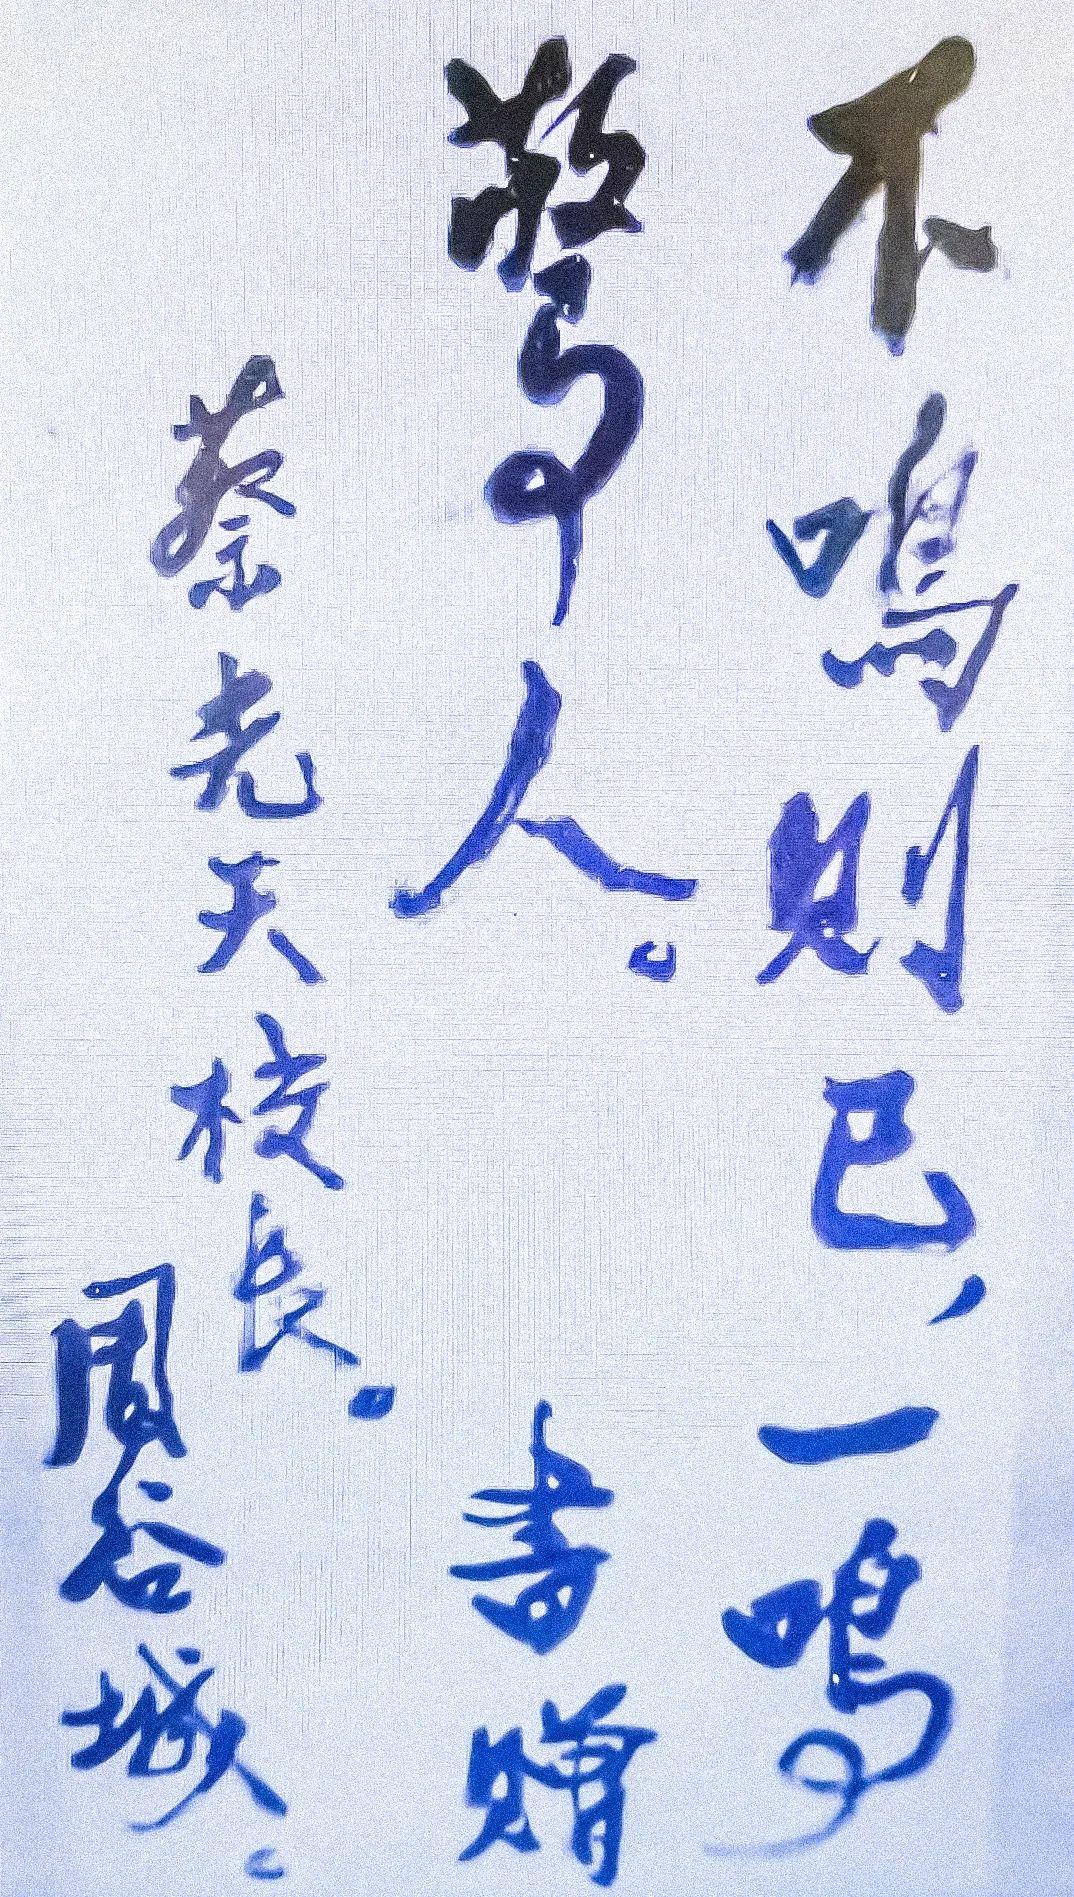 不鳴則已,一鳴
驚人。書贈
蔡光天校長。
周谷城。